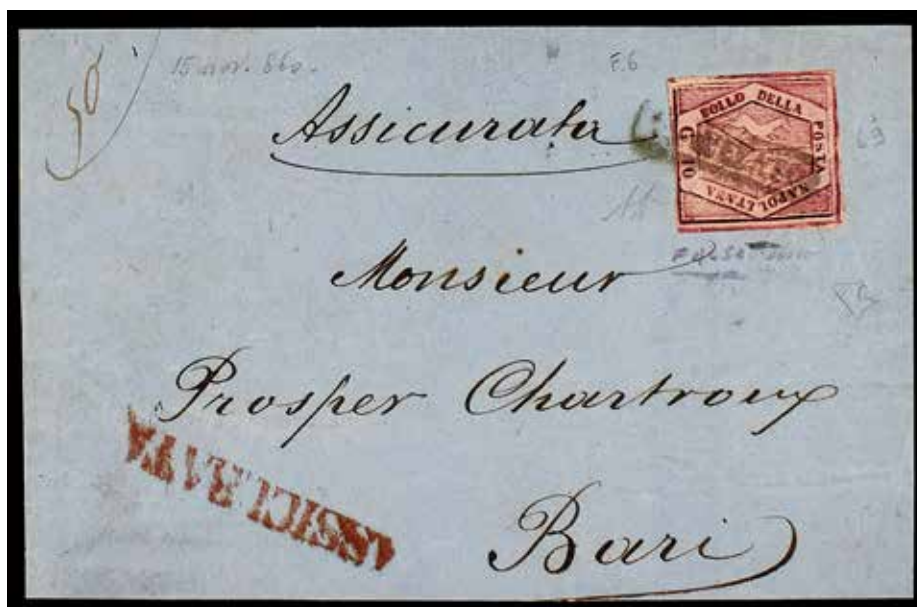 50
15 nov. 860.
F.6
Assicurata
BOLLO DELLA
POSTA
NAPOLETANA
G. 10
Monsieur
Prosper Chartroux
ASSICURATA
Bari